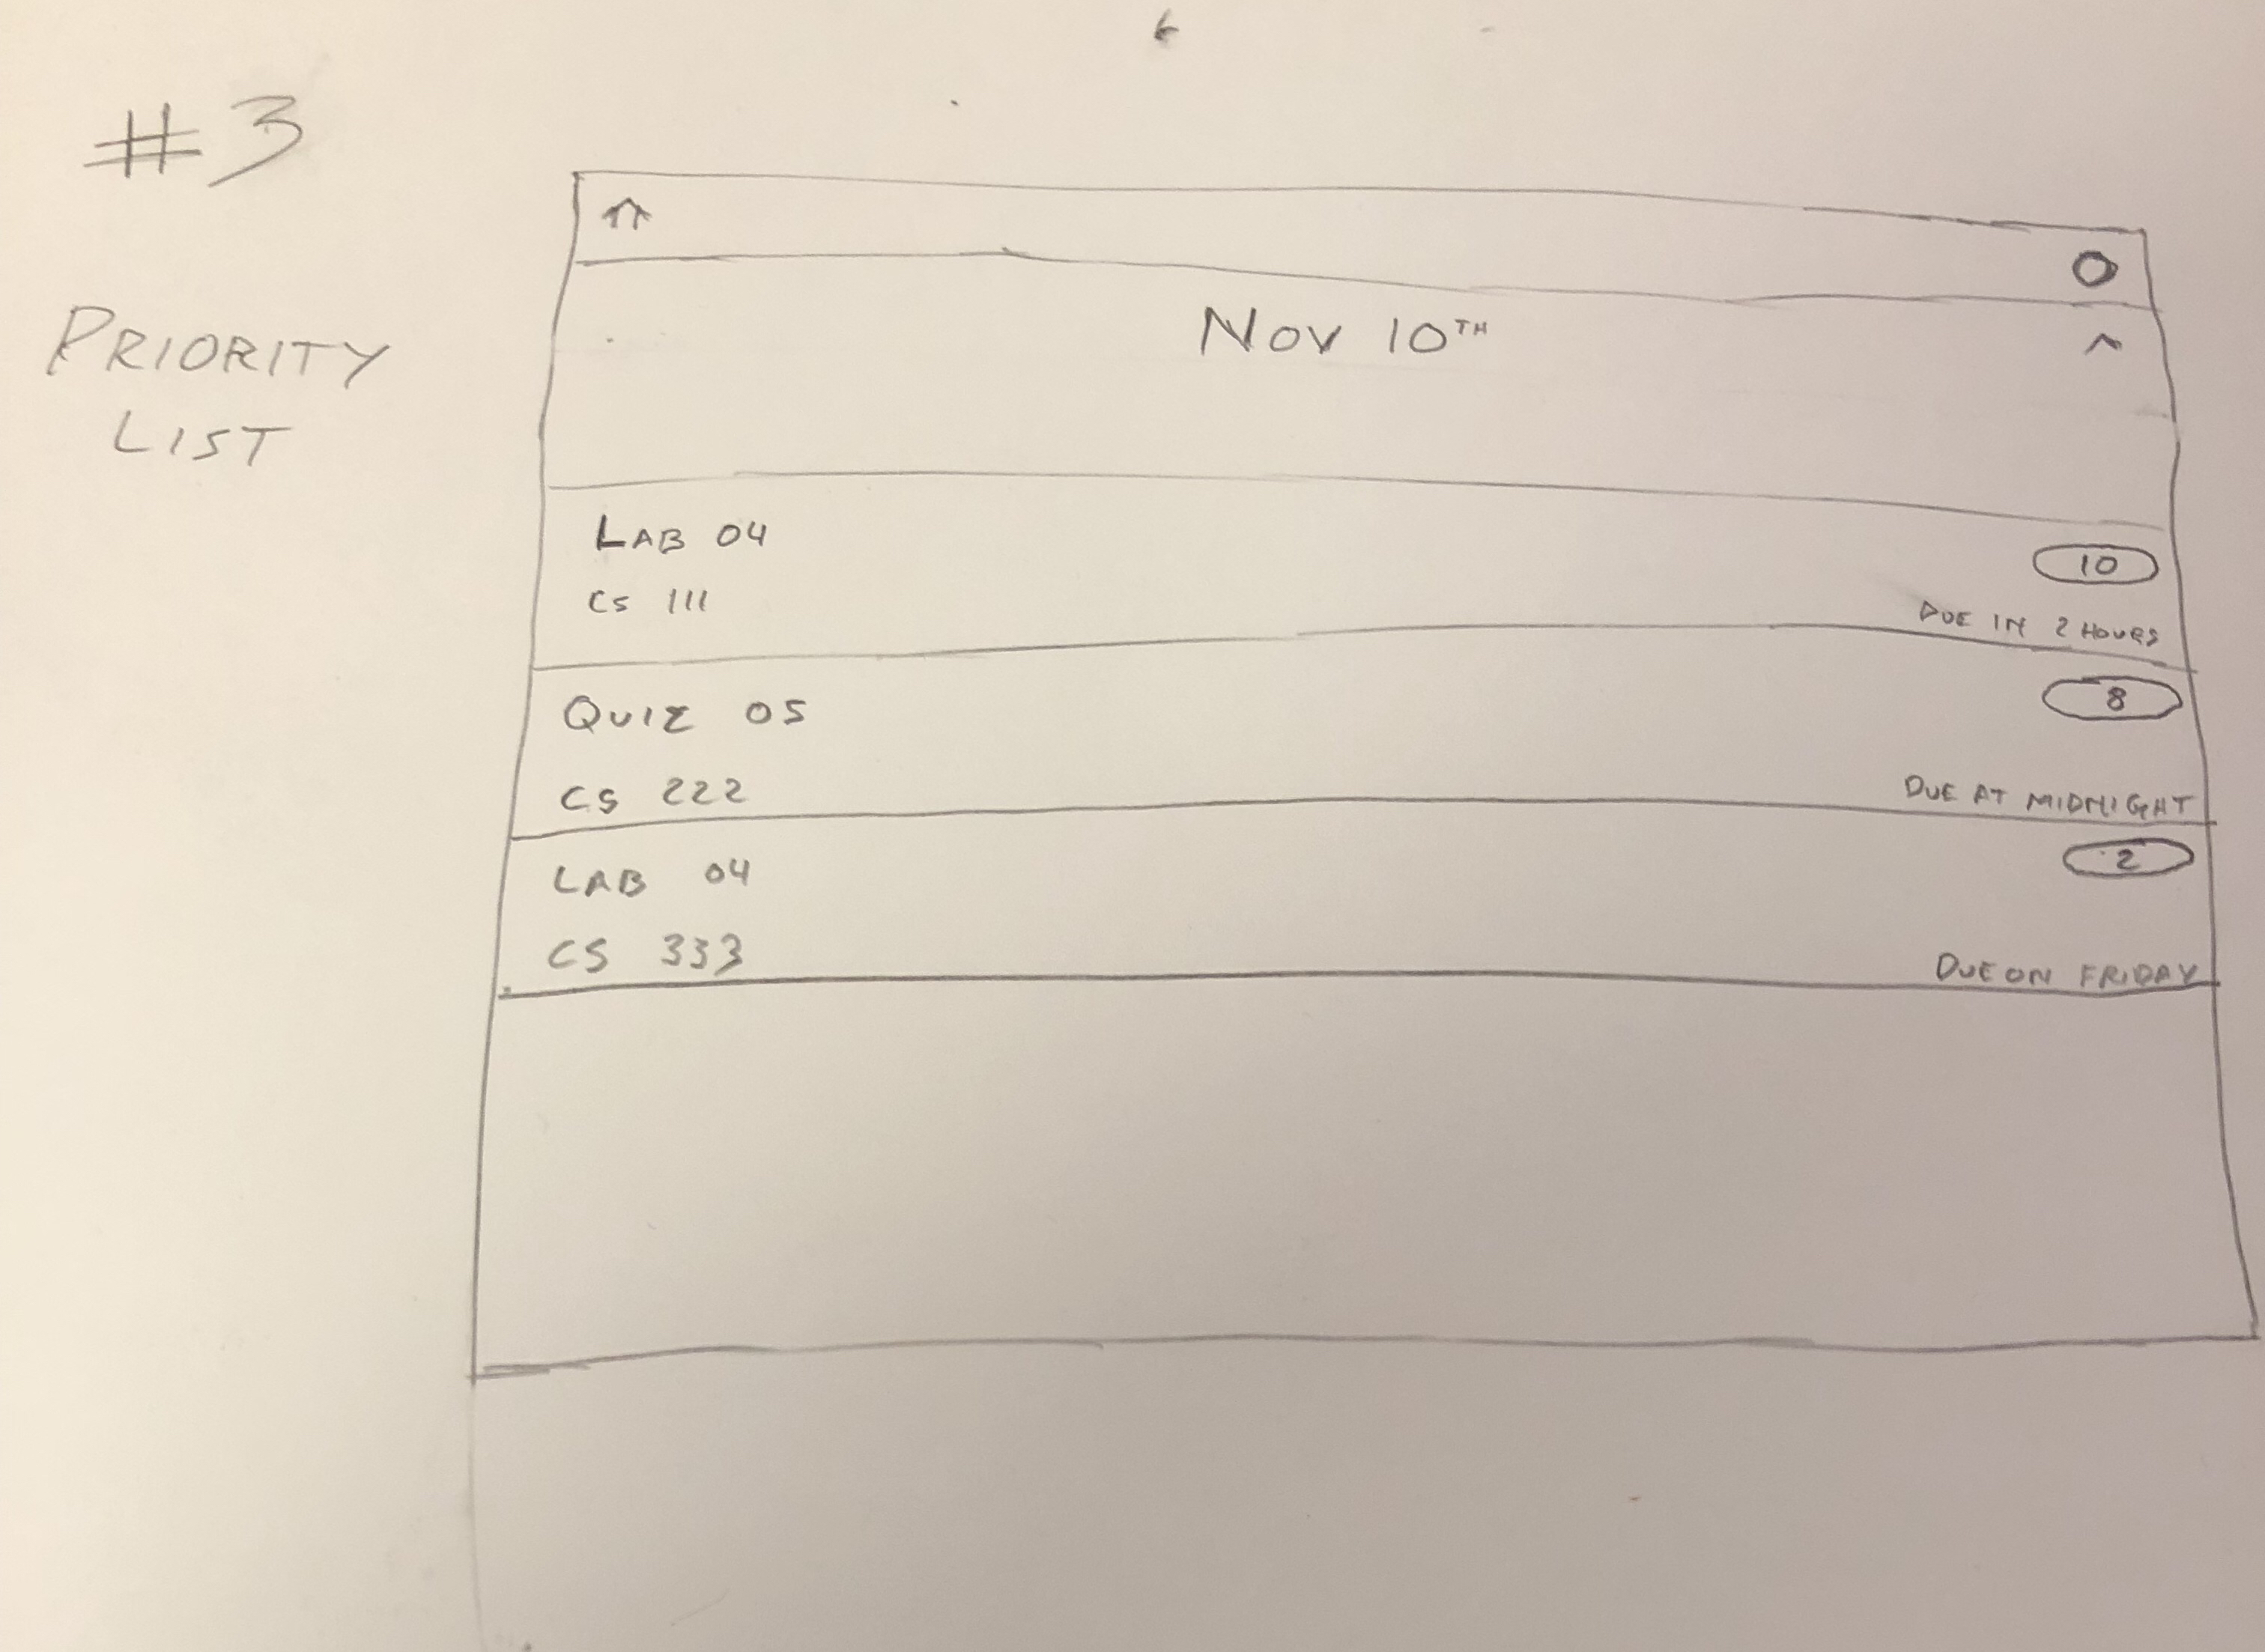 #3
PRIORITY
LIST
NOV 10TH
LAB 04
CS 111
10
DUE IN 2 HOURS
QUIZ 05
CS 222
8
DUE AT MIDNIGHT
LAB 04
CS 333
2
DUE ON FRIDAY